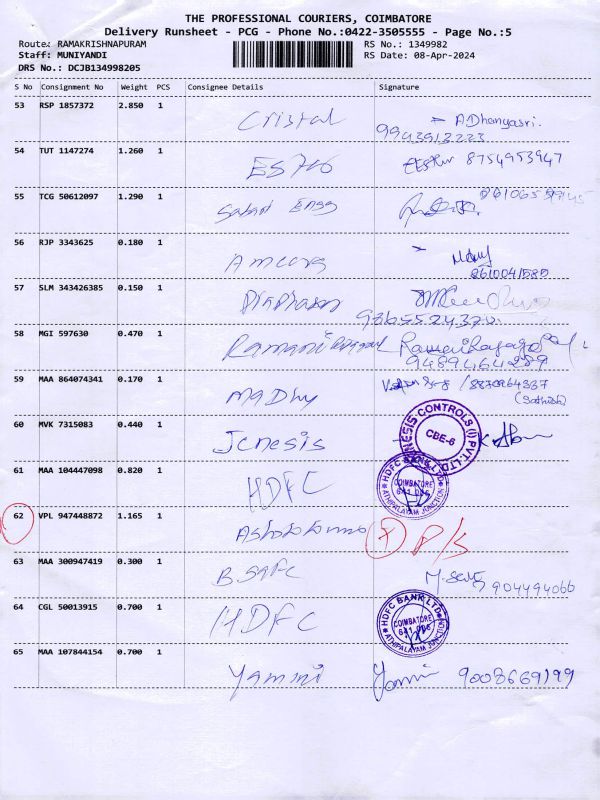 THE PROFESSIONAL COURIERS, COIMBATORE
Delivery Runsheet - PCG - Phone No.:0422-3505555 - Page No.:5
Route: RAMAKRISHNAPURAM RS No.: 1349982
Staff: MUNIYANDI RS Date: 08-Apr-2024
DRS No.: DCJB134998205
S No Consignment No Weight PCS Consignee Details Signature
53 RSP 1857372 2.850 1 Cristal A Dhanyasri.
9943913223
54 TUT 1147274 1.260 1 8754953947
55 TCG 50612097 1.290 1 Engg
56 RJP 3343625 0.180 1
57 SLM 343426385 0.150 1
9865524370
58 MGI 597630 0.470 1 Ramani
9489464289
59 MAA 864074341 0.170 1 Madhu
(Sathish)
60 MVK 7315083 0.440 1 Jenesis
CONTROLS (I) PVT. LTD
CBE-6
61 MAA 104447098 0.820 1 HDFC
HDFC BANK LTD
COIMBATORE
641 006
ATHIPALAYAM JUNCTION
62 VPL 947448872 1.165 1 P/S
63 MAA 300947419 0.300 1
904494066
64 CGL 50013915 0.700 1 HDFC
HDFC BANK LTD
COIMBATORE
641 006
ATHIPALAYAM JUNCTION
65 MAA 107844154 0.700 1 Yamini Yamini 9008669199